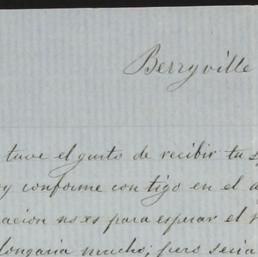 Berryville
tuve el gusto de recibir tu
y conforme contigo en el
acion no xs para esperar el
longaria mucho; pero seria